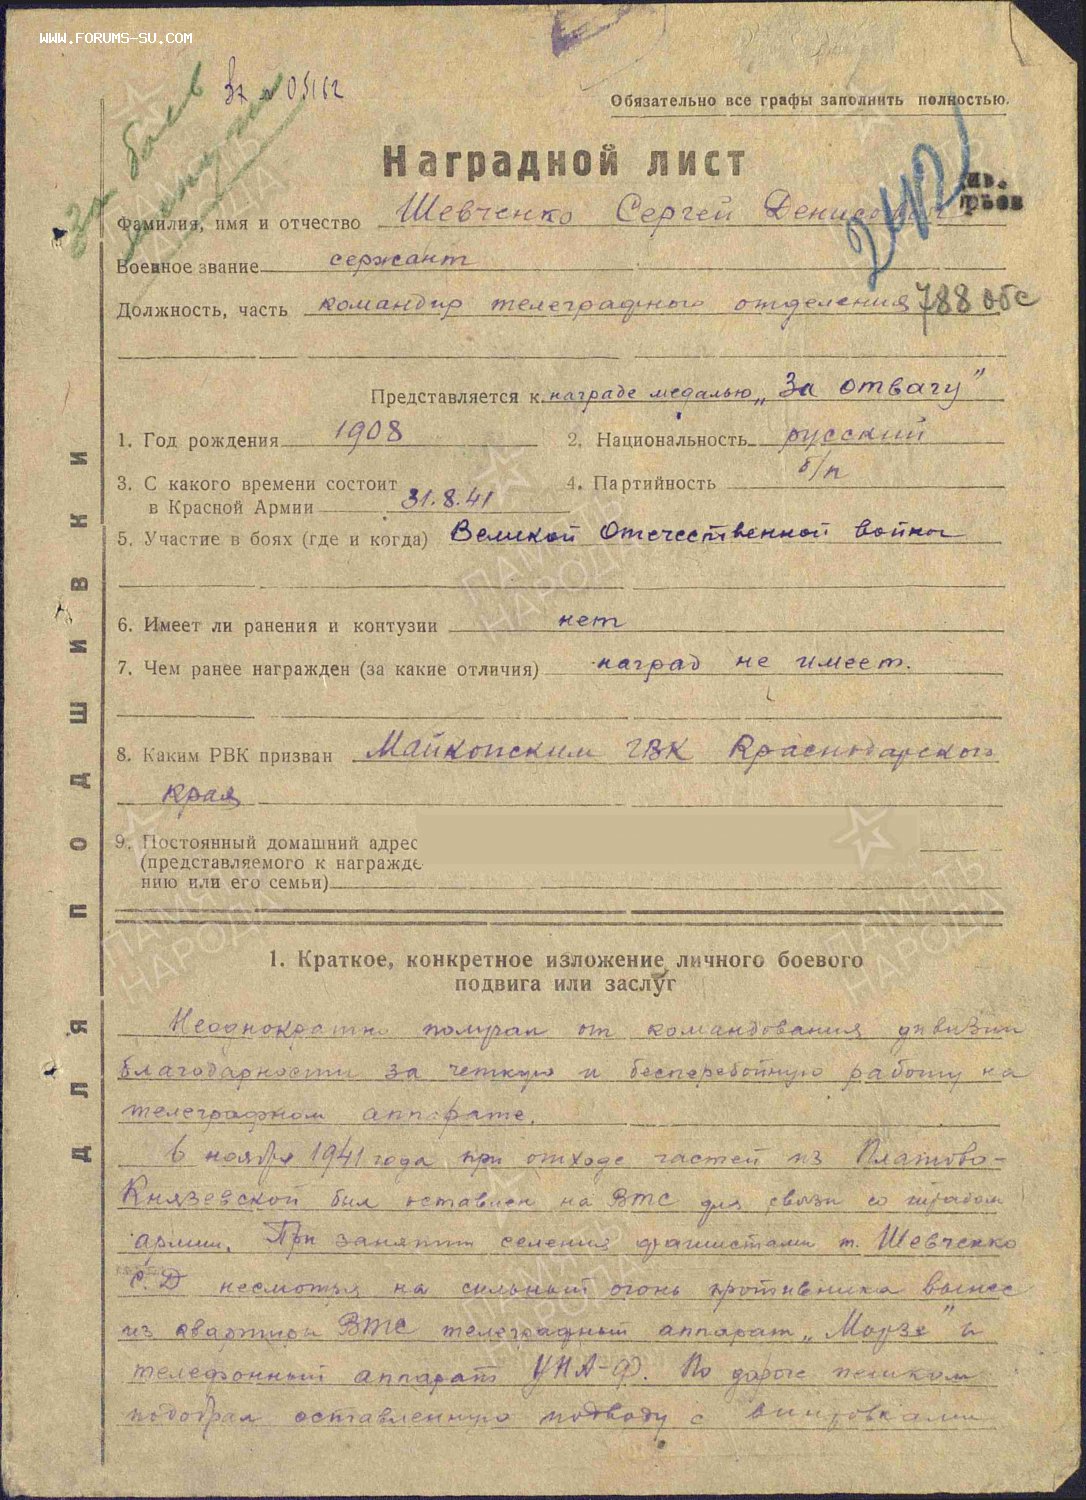 WWW.FORUMS-SU.COM
Обязательно все графы заполнить полностью.
Наградной лист
242
Фамилия, имя и отчество Шевченко Сергей Денисович
Военное звание сержант
Должность, часть командир телеграфного отделения 788 обс
Представляется к награде медалью „За отвагу"
1. Год рождения 1908 2. Национальность русский
3. С какого времени состоит 4. Партийность б/п
в Красной Армии 31.8.41
5. Участие в боях (где и когда) Великой Отечественной войны
6. Имеет ли ранения и контузии нет
7. Чем ранее награжден (за какие отличия) наград не имеет.
8. Каким РВК призван Майкопским ГВК Краснодарского
края
9. Постоянный домашний адрес
(представляемого к награжде-
нию или его семьи)
ДЛЯ ПОДШИВКИ
1. Краткое, конкретное изложение личного боевого
подвига или заслуг
Неоднократно получал от командования дивизии
благодарности за четкую и бесперебойную работу на
телеграфном аппарате.
В ноября 1941 года при отходе частей из Платово-
Князевской был оставлен на ВТС для связи со штабом
армии. При занятии селения фашистами т. Шевченко
С.Д несмотря на сильный огонь противника вынес
из квартиры ВТС телеграфный аппарат „Морзе" и
телефонный аппарат УНА-Ф. По дороге пешком
подобрал оставленную подводу с винтовками
ПАМЯТЬ
НАРОДА